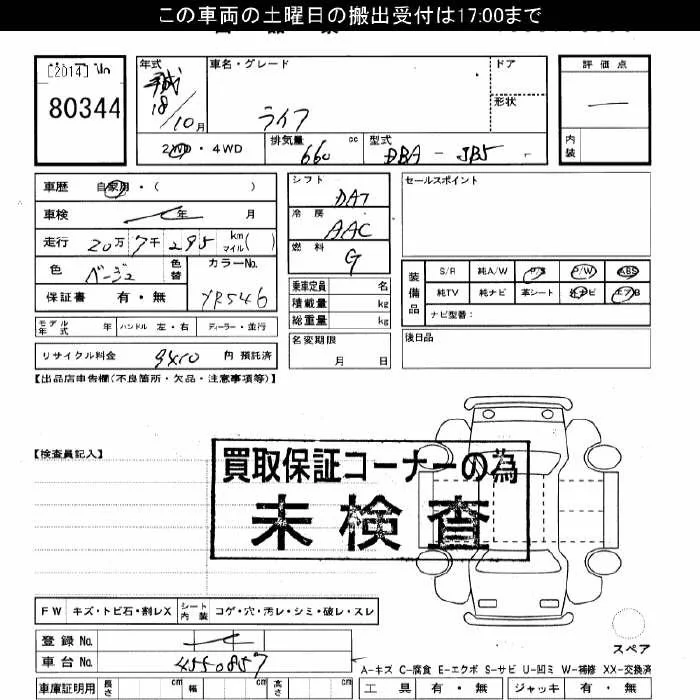 この車両の土曜日の搬出受付は17:00まで
[2014]
80344
年式
平成
18/10月
車名・グレード
ライフ
ドア
形状
評価点
内装
2WD・4WD
排気量 660 cc
型式 DBA - JB5
車歴 自家用・( )
車検 年 月
走行 20万7千295 km マイル( )
色 ベージュ 色替
カラーNo. YR546
保証書 有・無
シフト DAT
冷房 AAC
燃料 G
乗車定員 名
積載量 kg
総重量 kg
名変期限
月 日
セールスポイント
装備品
S/R 純A/W P/S P/W ABS
純TV 純ナビ 革シート 社ナビ エアB
ナビ型番:
後日品
モデル年式 年 ハンドル 左・右 ディーラー・並行
リサイクル料金 円 預託済
【出品店申告欄(不良箇所・欠品・注意事項等)】
【検査員記入】
買取保証コーナーの為
未検査
FW キズ・トビ石・割レX シート内装 コゲ・穴・汚レ・シミ・破レ・スレ
登録No.
車台No. 4550857
スペア
A-キズ C-腐食 E-エクボ S-サビ U-凹ミ W-補修 XX-交換済
車庫証明用 長さ cm 幅 cm 高さ cm
工具 有・無 ジャッキ 有・無